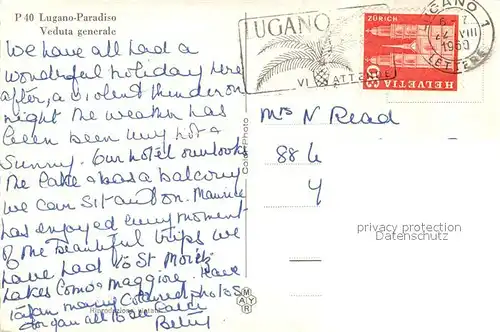 P 40 Lugano-Paradiso
Veduta generale
We have all had a
wonderful holiday here
after, a violent thunder on
night the weather has
been been very hot &
Sunny. Our hotel overlooks
the lake & has a balcony
we can sit out on. Maurice
has enjoyed every moment
of the beautiful trips we
have had to St Moritz
Lakes Como & Maggiore. Have
taken many Coloured photos
for you all to see
Betty
Color-Photo
MAYR
LUGANO
VI ATTENDE
ZÜRICH
HELVETIA
LUGANO 1
VIII
LETTERE
Mrs N Read
88
privacy protection
Datenschutz